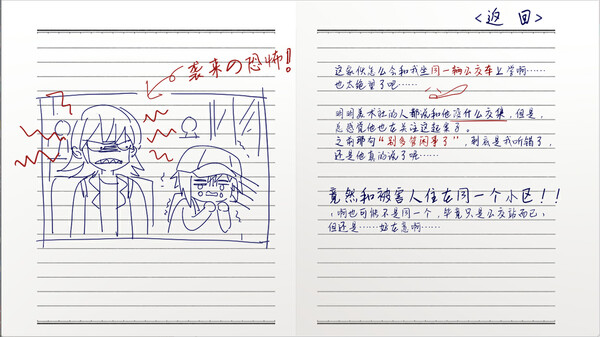 <返 回>
袭来の恐怖!
这家伙怎么会和我坐同一辆公交车上学啊……
也太绝望了吧……
明明美术社的人都说和他没什么交集，但是，
总感觉他也在关注这起案子。
之前那句“别多管闲事了”，到底是我听错了，
还是他真的说了呢……
竟然和被害人住在同一个小区！！
（啊也可能不是同一个，毕竟只是公交站而已，
但还是……好在意啊……